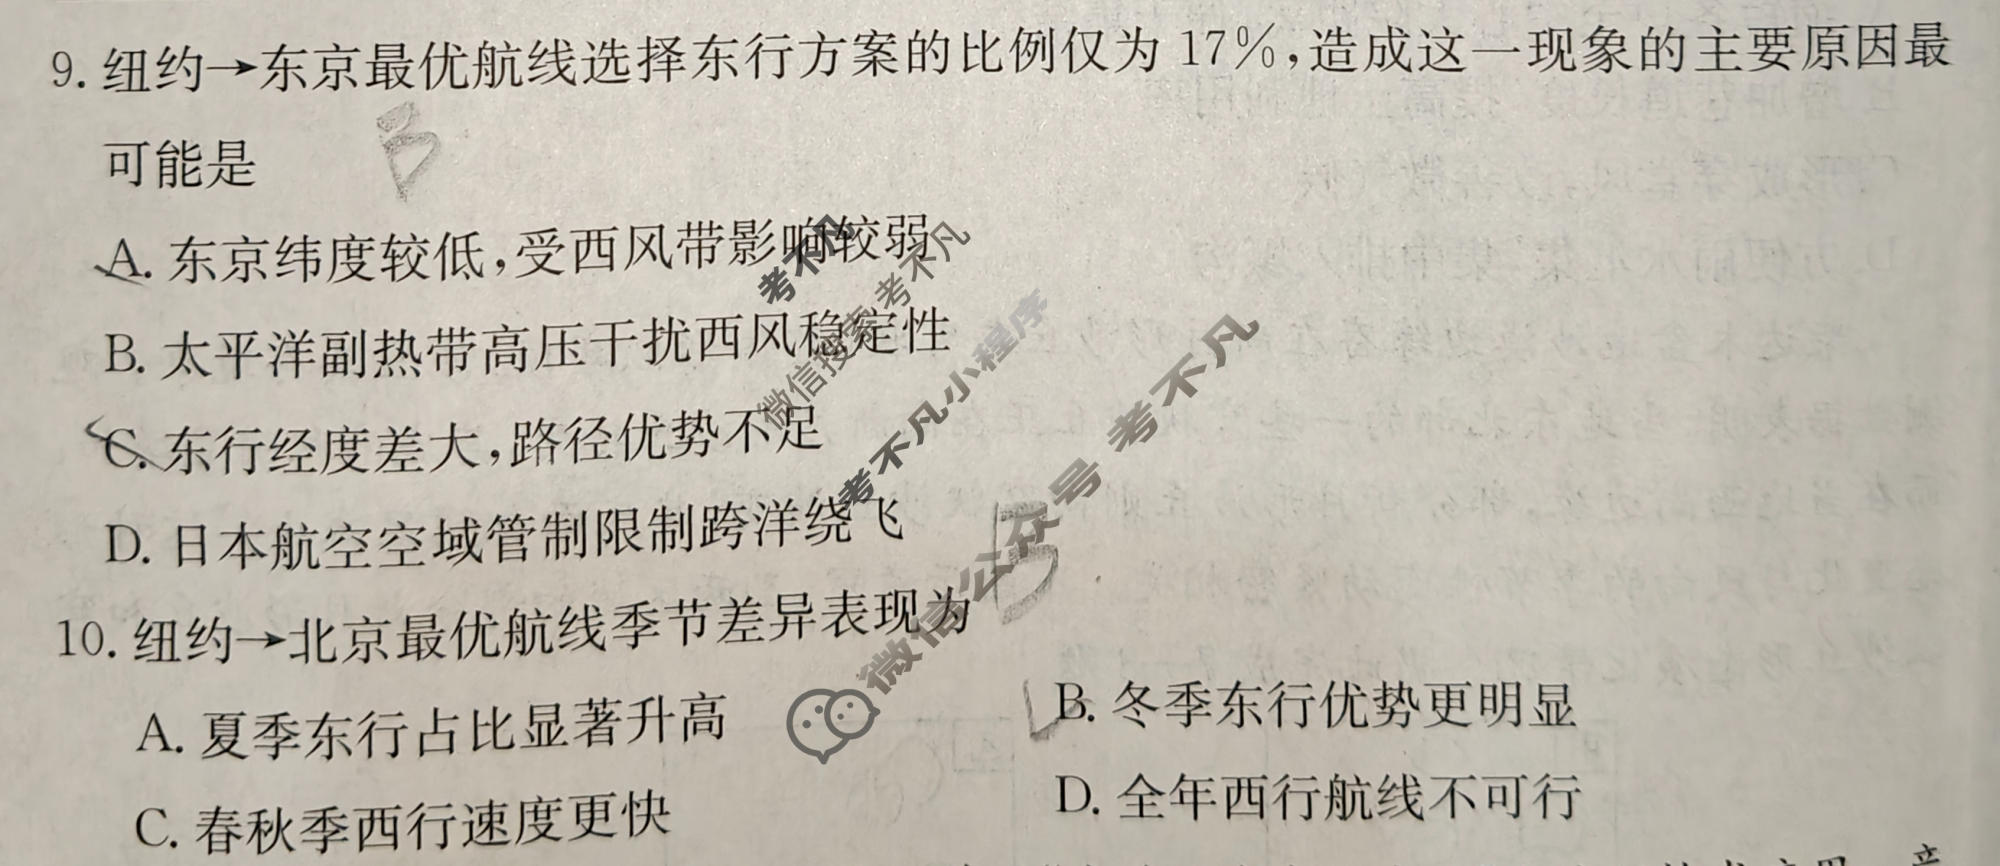 9. 纽约→东京最优航线选择东行方案的比例仅为 17%,造成这一现象的主要原因最
可能是
B
A. 东京纬度较低,受西风带影响较弱
B. 太平洋副热带高压干扰西风稳定性
C. 东行经度差大,路径优势不足
D. 日本航空空域管制限制跨洋绕飞
10. 纽约→北京最优航线季节差异表现为
B
A. 夏季东行占比显著升高
B. 冬季东行优势更明显
C. 春秋季西行速度更快
D. 全年西行航线不可行
考不凡
微信搜索考不凡
考不凡小程序
微信公众号 考不凡